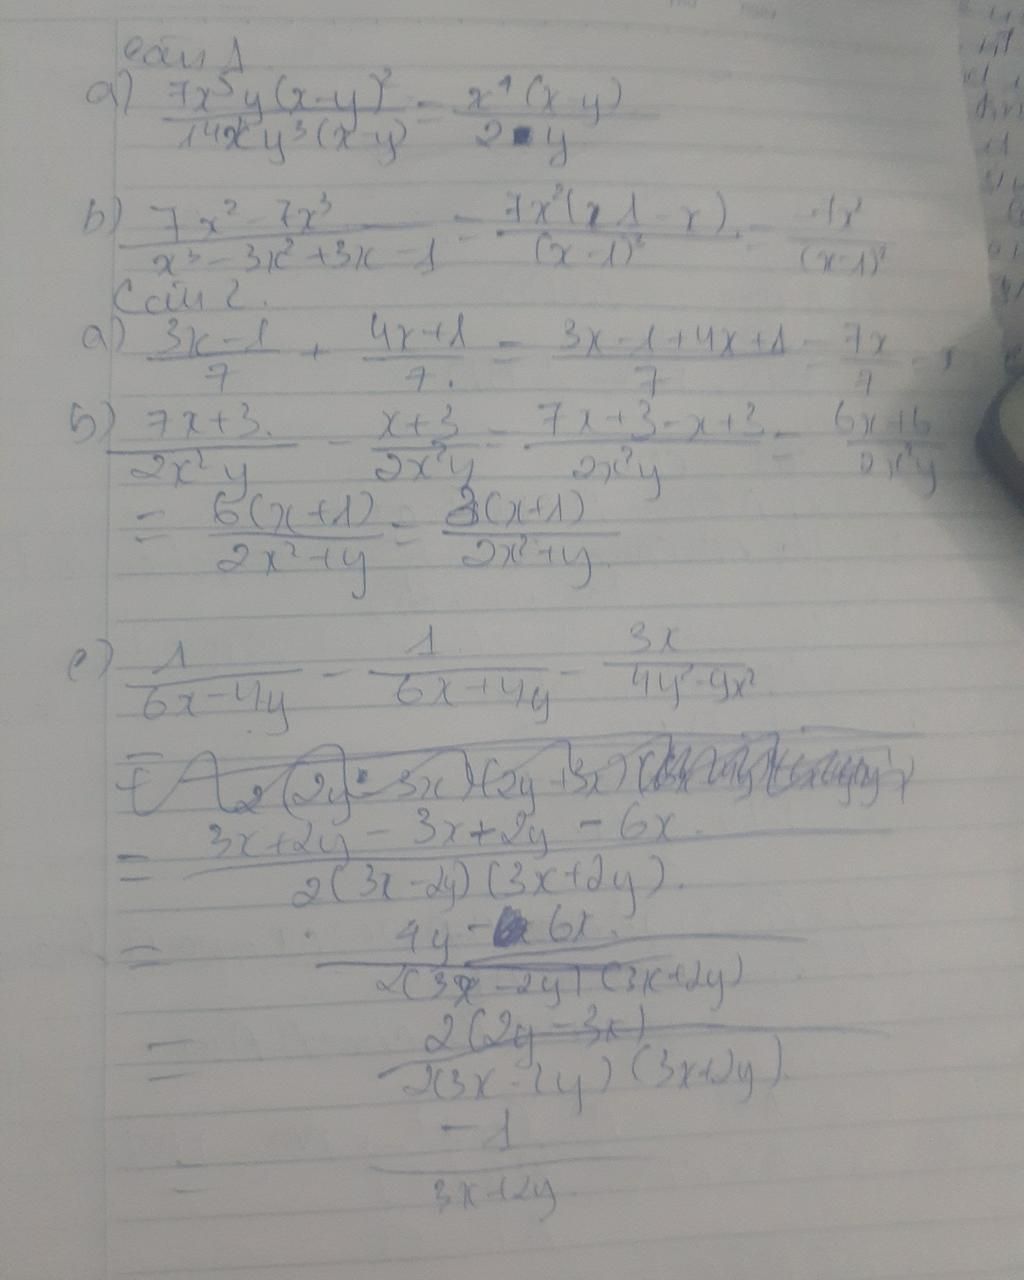 Câu 1
a) 7x⁵y(x-y)² / 14x y³(x-y) = x⁴(x-y) / 2 y
b) 7x² - 7x³ / x³ - 3x² + 3x - 1 = 7x²(1 - x) / (x-1)³ = -7x² / (x-1)²
Câu 2.
a) 3x-1 / 7 + 4x+1 / 7. = 3x-1+4x+1 / 7 = 7x / 7 =
b) 7x+3. / 2x²y - x+3 / 2x²y = 7x+3-x+3 / 2x²y = 6x+6 / 2x²y
= 6(x+1) / 2x²+y = 3(x+1) / 2x²+y.
c) 1 / 6x-4y - 1 / 6x+4y - 3x / 4y²-9x²
= 2(2y-3x)(2y+3x)
= 3x+2y - 3x+2y - 6x. / 2(3x-2y)(3x+2y).
= 4y - 6x. / 2(3x-2y)(3x+2y)
= 2(2y-3x) / 2(3x-2y)(3x+2y).
= -1 / 3x+2y.